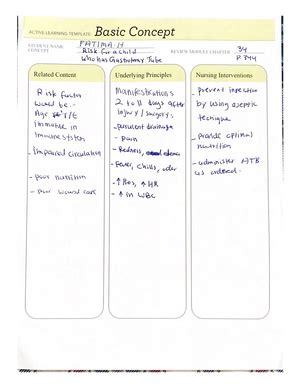 ACTIVE LEARNING TEMPLATE: Basic Concept
STUDENT NAME FATIMA.H
CONCEPT Risk for a child
Who has Gastrostomy Tube
REVIEW MODULE CHAPTER 34
P. 344
Related Content
Risk factor
would be:-
Age
Immune in
immune system
- Impaired circulation
- poor nutrition
- poor wound care
Underlying Principles
Manifestations
2 to 11 days after
injury / surgery:
- purulent drainage
- pain
- Redness, edema
- Fever, chills, odor
- ↑ Res, ↑ HR
- ↑ in WBC
Nursing Interventions
- prevent infection
by using aseptic
technique
- provide optimal
nutrition
- administer ATB
as ordered.